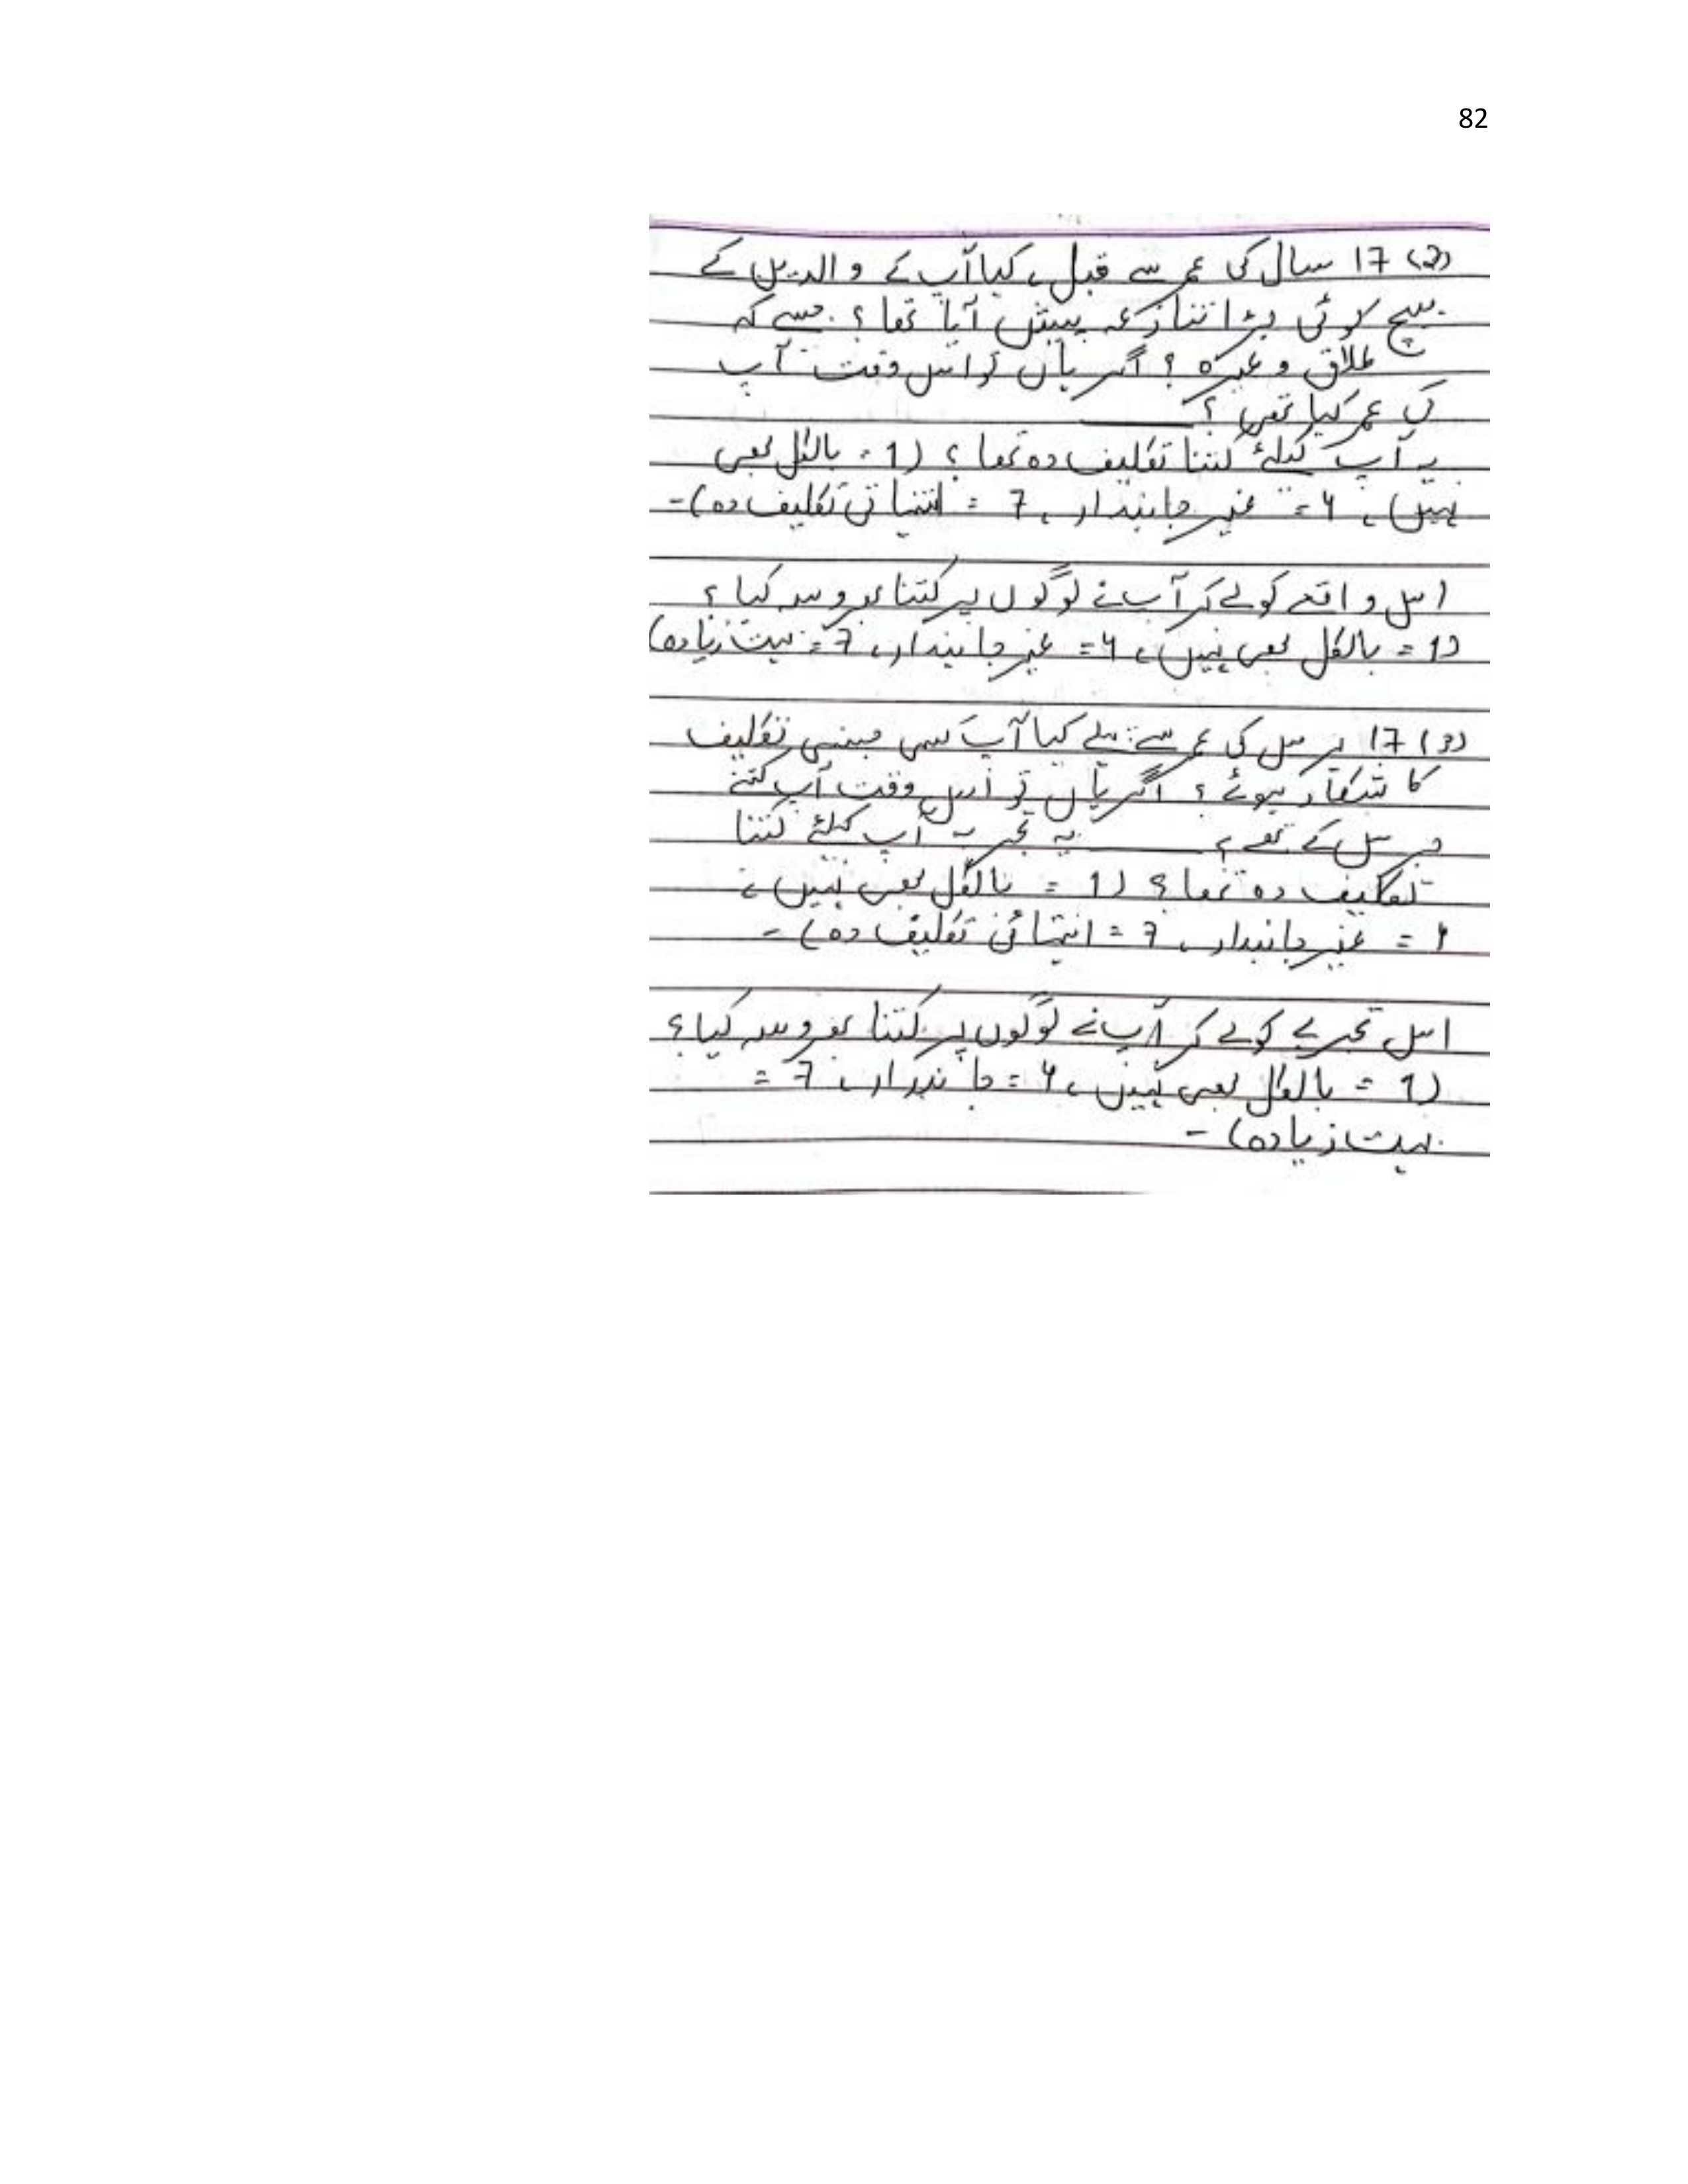 82
(2) 17 سال کی عمر سے قبل، کیا آپ کے والدین کے
بیچ کوئی بڑا تنازعہ پیش آیا تھا؟ جیسے کہ
طلاق وغیرہ؟ اگر ہاں تو اس وقت آپ
کی عمر کیا تھی؟ ______
یہ آپ کیلئے کتنا تکلیف دہ تھا؟ (1 = بالکل بھی
نہیں)، 4 = غیر جانبدار، 7 = انتہائی تکلیف دہ)-
اس واقعے کو لے کر آپ نے لوگوں پر کتنا بھروسہ کیا؟
(1 = بالکل بھی نہیں، 4 = غیر جانبدار، 7 = بہت زیادہ)
(3) 17 برس کی عمر سے پہلے کیا آپ کسی جنسی تکلیف
کا شکار ہوئے؟ اگر ہاں تو اس وقت آپ کتنے
برس کے تھے؟ ______ یہ تجربہ آپ کیلئے کتنا
تکلیف دہ تھا؟ (1 = بالکل بھی نہیں،
4 = غیر جانبدار، 7 = انتہائی تکلیف دہ)-
اس تجربے کو لے کر آپ نے لوگوں پر کتنا بھروسہ کیا؟
(1 = بالکل بھی نہیں، 4 = جانبدار، 7 =
بہت زیادہ)-